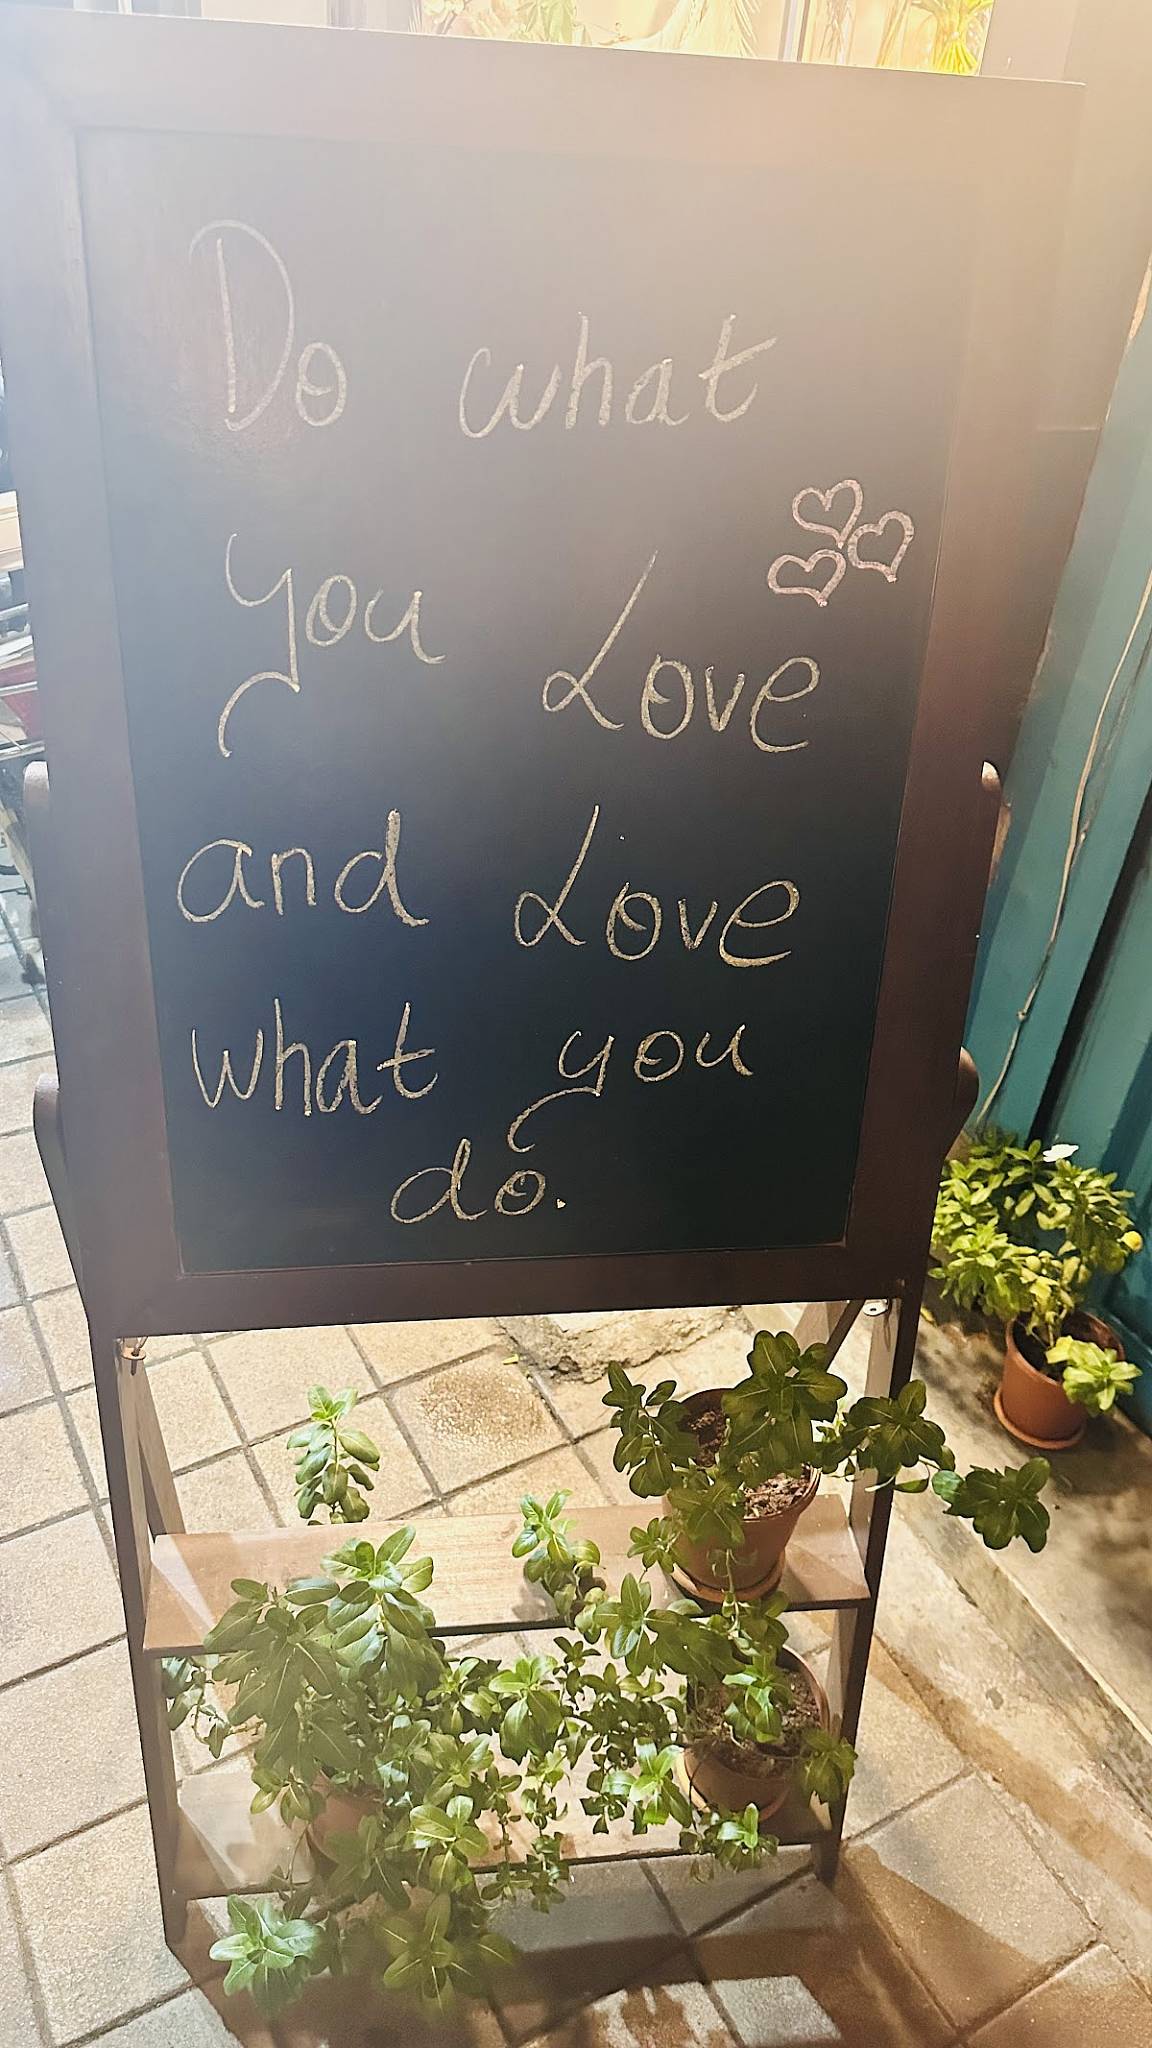 Do what
you Love
and Love
what you
do.